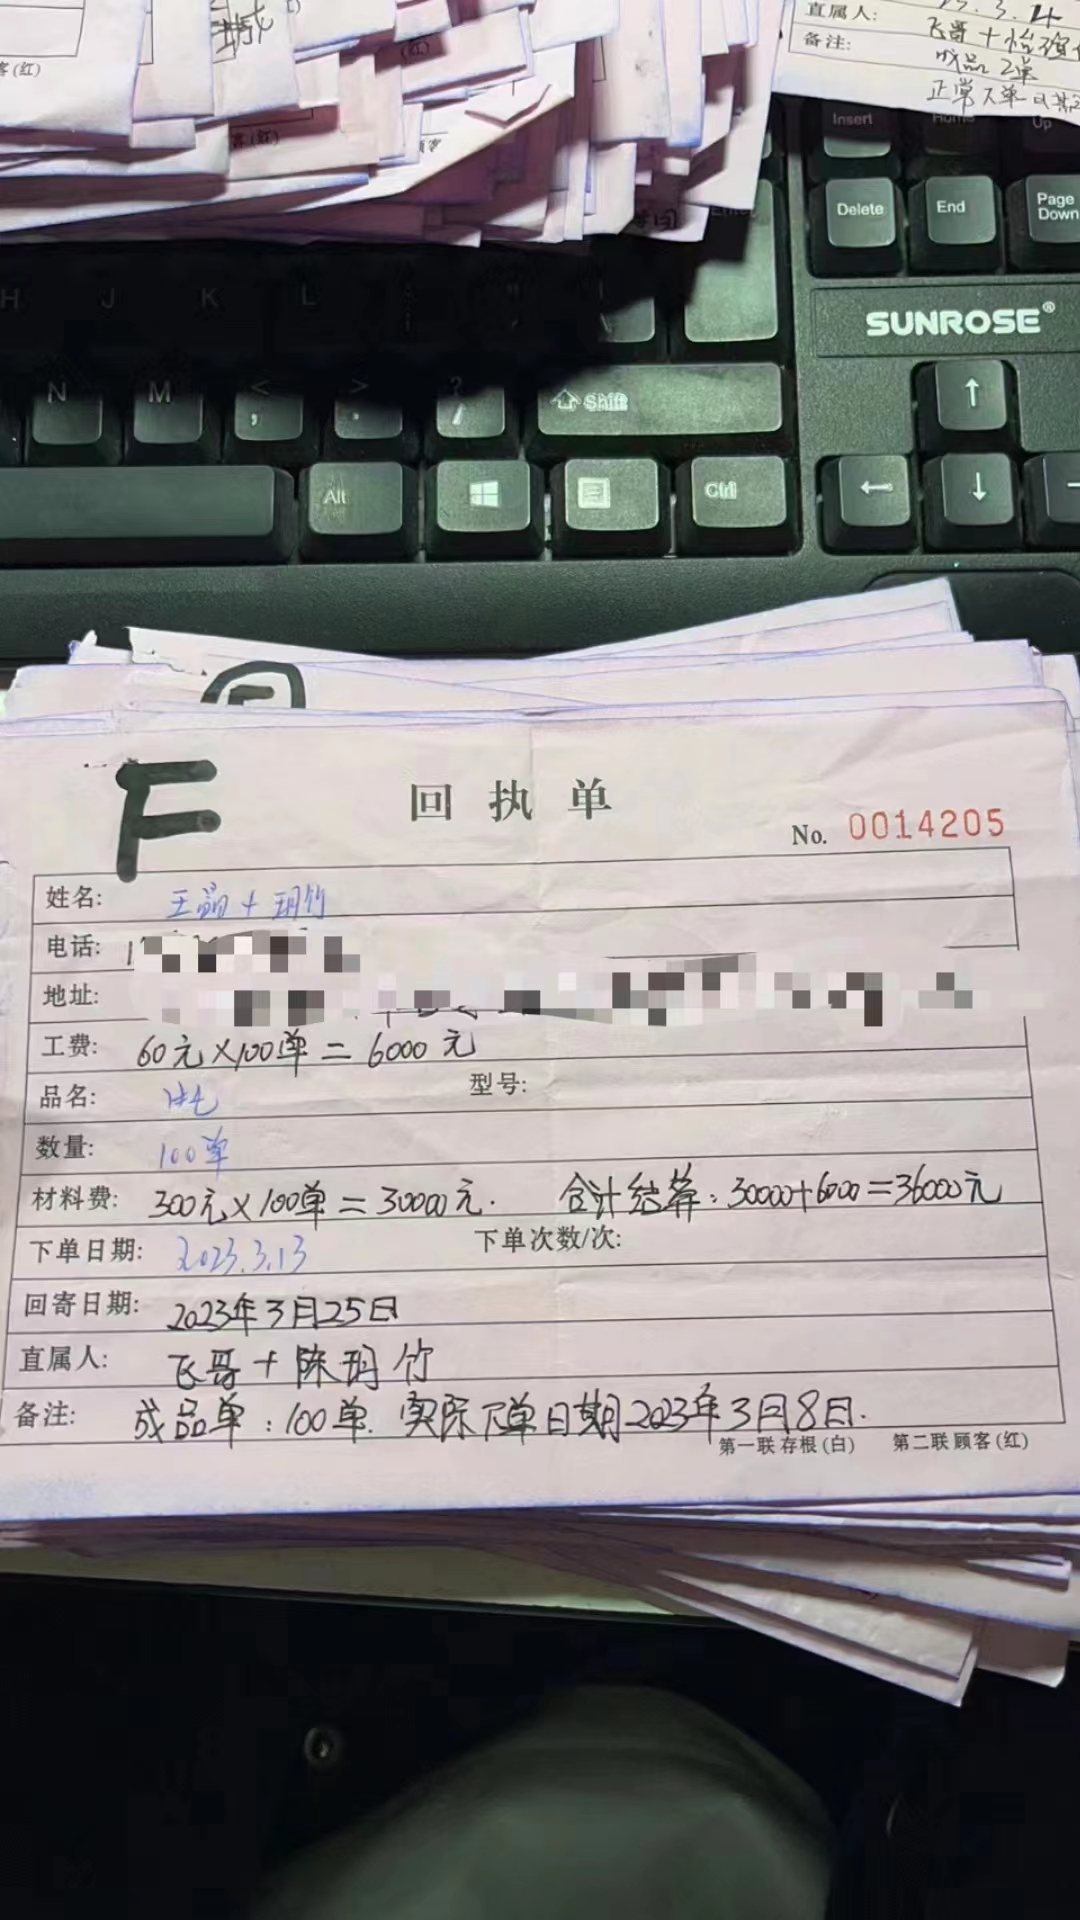 城
客(红)
(红)
客(红)
顾客
3.4
直属人: 飞哥+
备注: 成品2单
正常下单
Insert
Home
Up
Delete
End
Page Down
Enter
H J K L
SUNROSE®
N M < , > . ? /
Shift
↑
Alt
Ctrl
← ↓
F
F
回执单
No. 0014205
姓名: 王晶+玥竹
电话: 1
地址:
工费: 60元×100单=6000元
品名:
型号:
数量: 100单
材料费: 300元×100单=30000元. 合计结算:30000+6000=36000元
下单日期: 2023.3.13
下单次数/次:
回寄日期: 2023年3月25日
直属人: 飞哥+陈玥竹
备注: 成品单:100单. 实际下单日期2023年3月8日.
第一联 存根(白) 第二联 顾客(红)